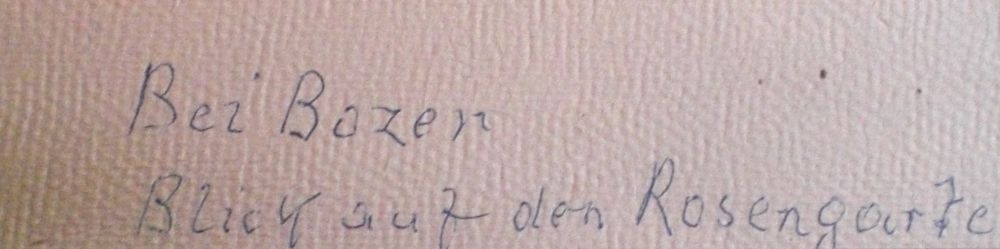 Bei Bozen
Blick auf den Rosengarte